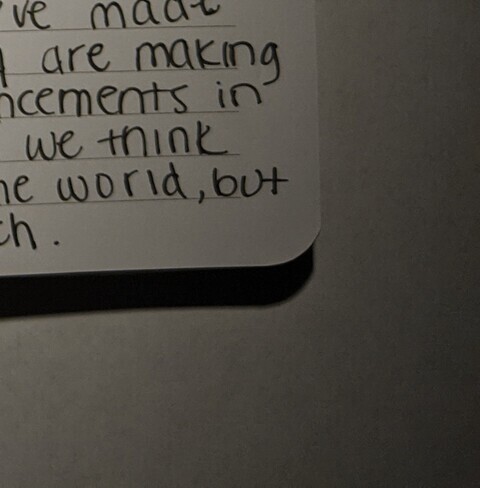 've made
are making
ncements in
we think
he world, but
ch.